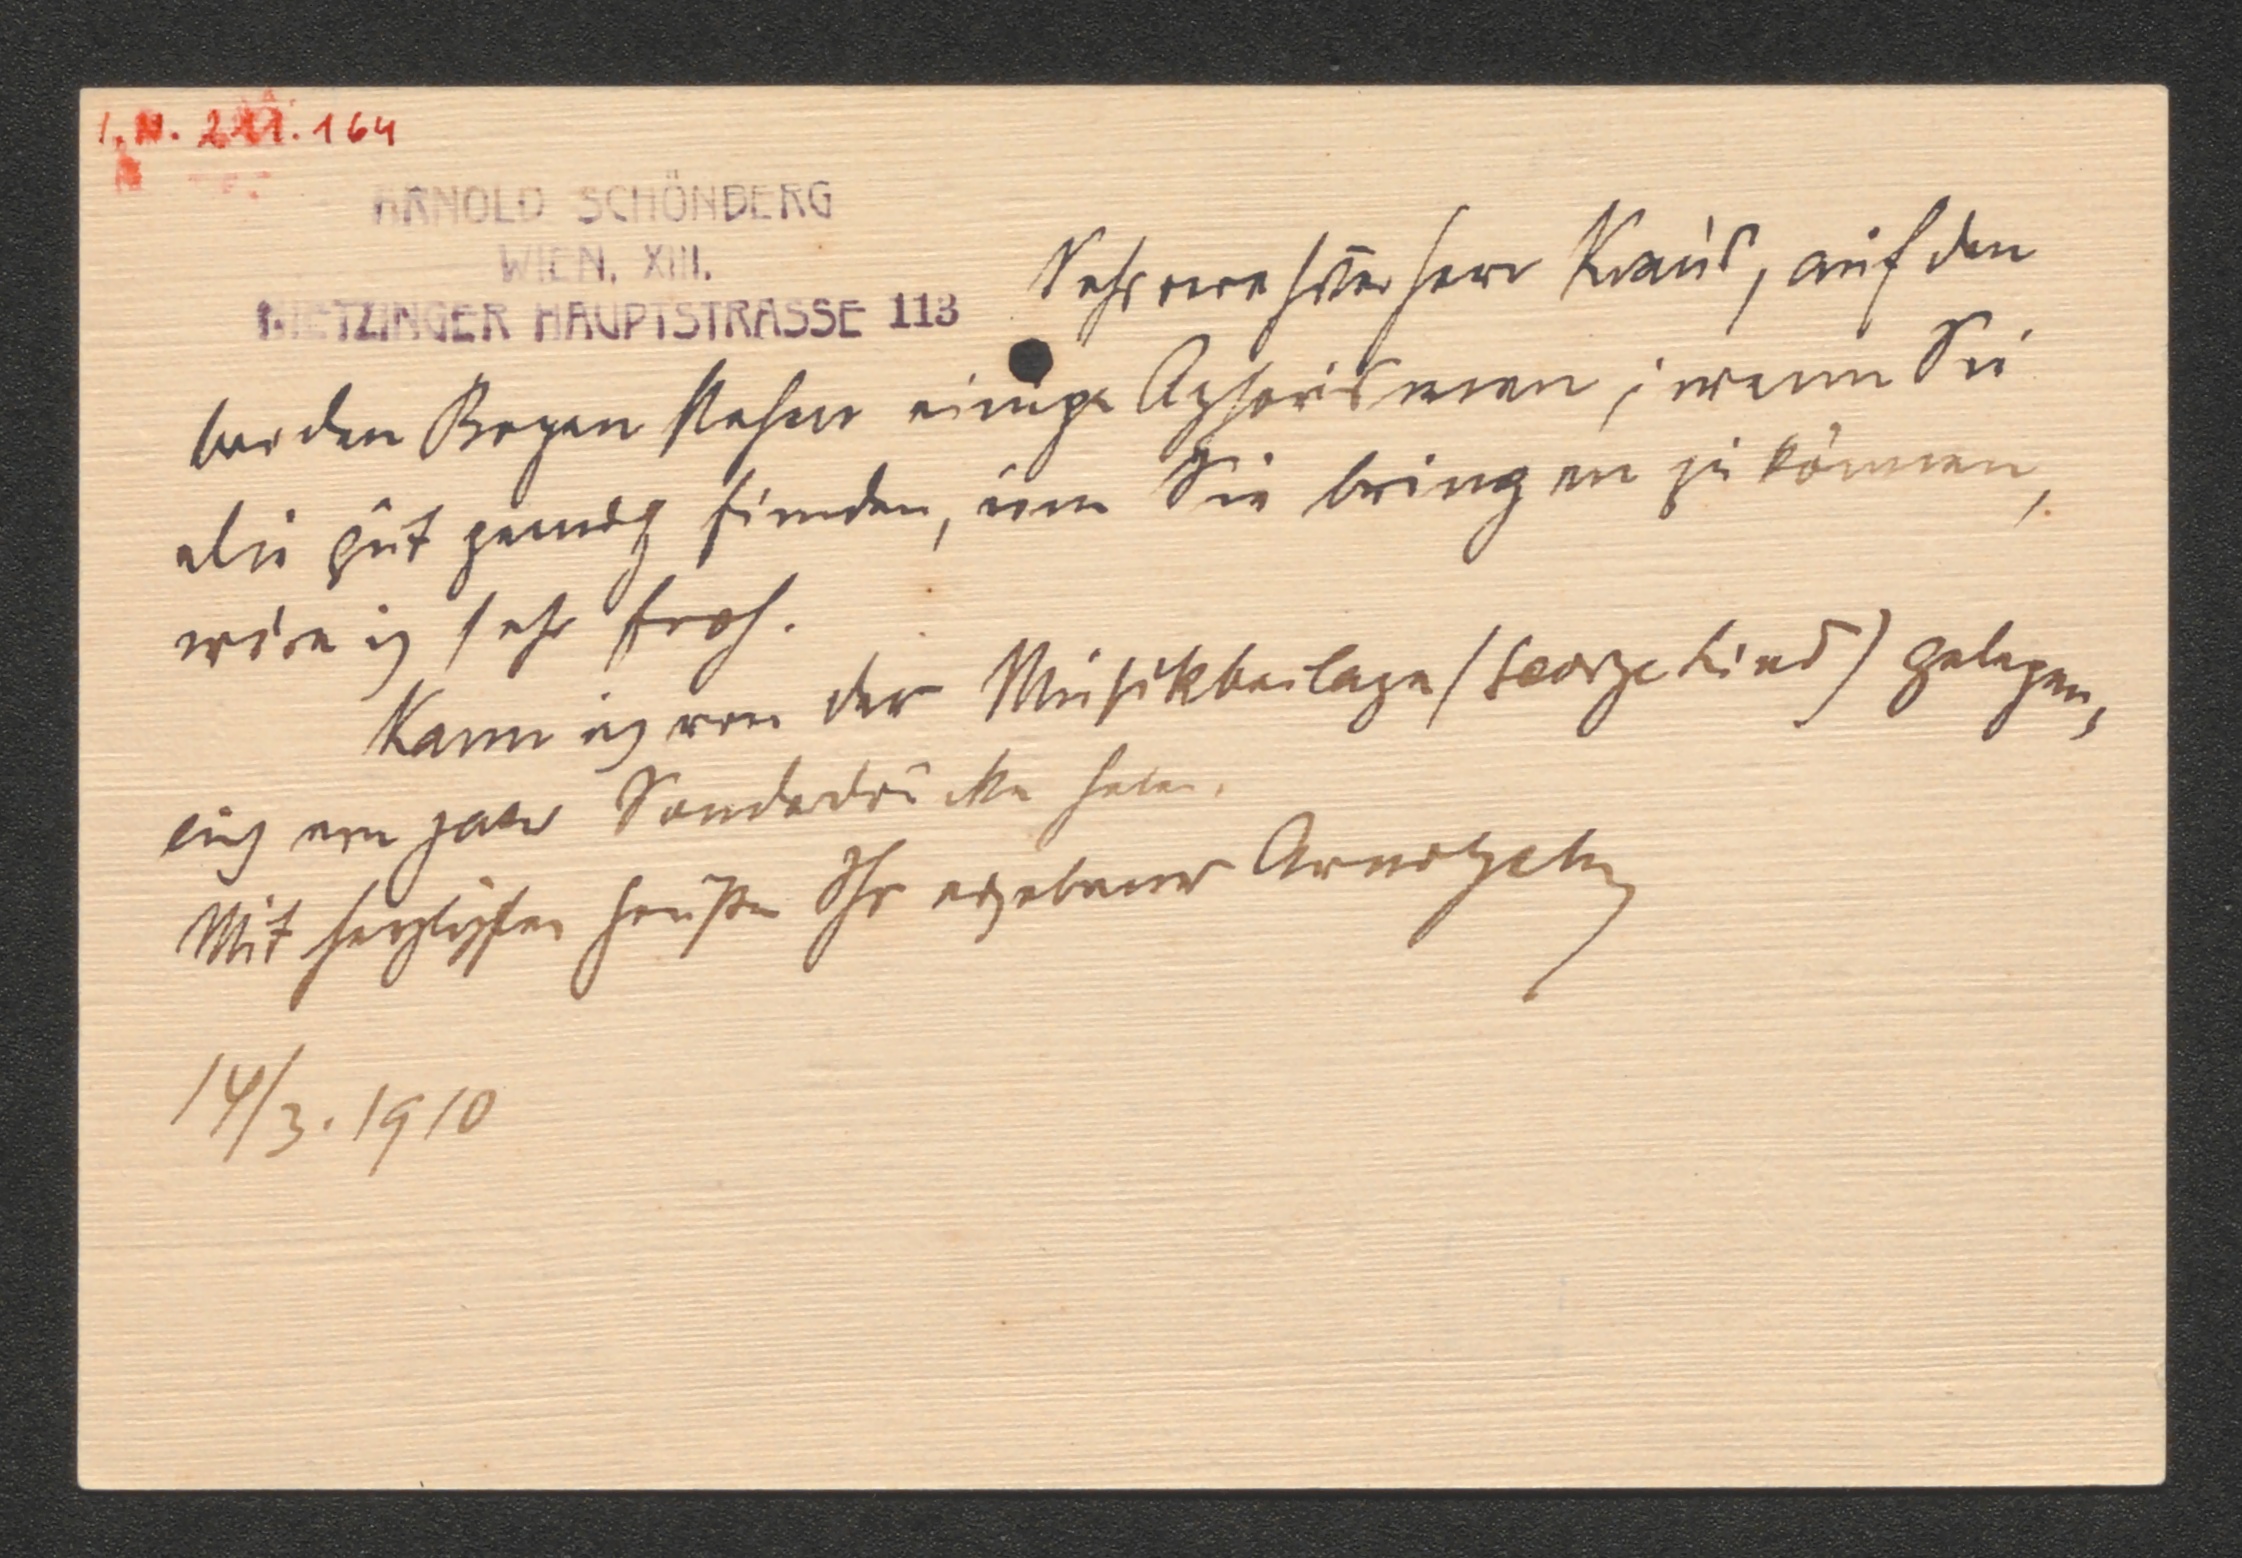 I.N. 211.164
ARNOLD SCHÖNBERG
WIEN, XIII.
HIETZINGER HAUPTSTRASSE 113
Sehr verehrter Herr Kraus, auf den
beiden Bogen stehen einige Aphorismen; wenn Sie
die gut genug finden, um Sie bringen zu können,
wäre ich sehr froh.
Kann ich von der Musikbeilage (George Lied) gelegen,
ein paar Sonderdrücke haben.
Mit herzlichsten Grüßen Ihr ergebener
14/3. 1910